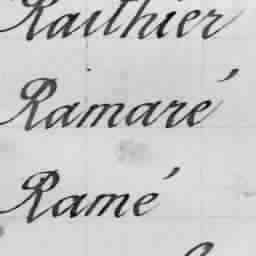 Raithier
Ramaré
Ramé